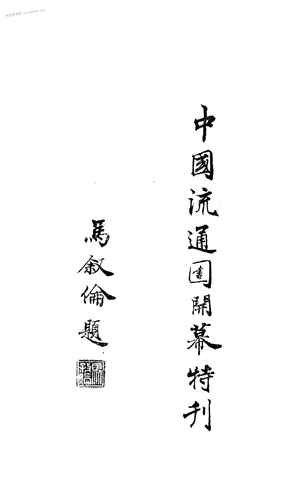 中國流通圕開幕特刊
馬叙倫題